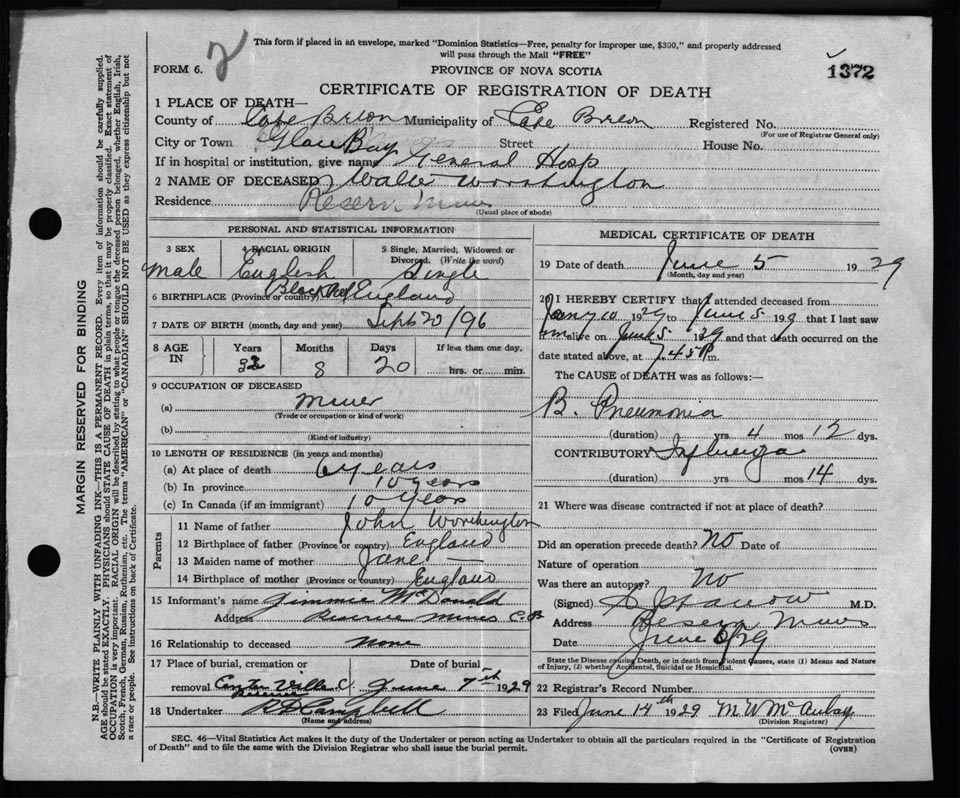 This form if placed in an envelope, marked "Dominion Statistics—Free, penalty for improper use, $300," and properly addressed
will pass through the Mail "FREE"
2
FORM 6.
PROVINCE OF NOVA SCOTIA
1372
CERTIFICATE OF REGISTRATION OF DEATH
1 PLACE OF DEATH—
County of Cape Breton Municipality of Cape Breton Registered No.
(For use of Registrar General only)
City or Town Glace Bay Street House No.
If in hospital or institution, give name General Hosp
2 NAME OF DECEASED Walter Worthington
Residence Reserve Mines
(Usual place of abode)
PERSONAL AND STATISTICAL INFORMATION
3 SEX 4 RACIAL ORIGIN 5 Single, Married, Widowed or
Divorced. (Write the word)
Male English Single
6 BIRTHPLACE (Province or country) England
7 DATE OF BIRTH (month, day and year) Sept 20/96
8 AGE IN Years Months Days If less than one day,
32 8 20 hrs. or min.
9 OCCUPATION OF DECEASED
(a) Miner
(Trade or occupation or kind of work)
(b)
(Kind of industry)
10 LENGTH OF RESIDENCE (in years and months)
(a) At place of death 6 years
(b) In province 10 years
(c) In Canada (if an immigrant) 10 years
Parents
11 Name of father John Worthington
12 Birthplace of father (Province or country) England
13 Maiden name of mother Jane —
14 Birthplace of mother (Province or country) England
15 Informant's name Jimmie McDonald
Address Reserve Mines C.B.
16 Relationship to deceased None
17 Place of burial, cremation or Date of burial
removal June 7th 1929
18 Undertaker Campbell
(Name and address)
MEDICAL CERTIFICATE OF DEATH
19 Date of death June 5 1929
(Month, day and year)
20 I HEREBY CERTIFY that I attended deceased from
Jany 10 1929 to June 5 1929 that I last saw
him alive on June 5 1929 and that death occurred on the
date stated above, at 7.45 P m.
The CAUSE of DEATH was as follows:—
B. Pneumonia
(duration) yrs 4 mos 12 dys.
CONTRIBUTORY Influenza
(duration) yrs mos 14 dys.
21 Where was disease contracted if not at place of death?
Did an operation precede death? No Date of
Nature of operation
Was there an autopsy? No
(Signed) M.D.
Address Reserve Mines
Date June 5/29
State the Disease causing Death, or in death from Violent Causes, state (1) Means and Nature
of Injury, (2) whether Accidental, Suicidal or Homicidal.
22 Registrar's Record Number
23 Filed June 14th 1929 M W McAulay
(Division Registrar)
SEC. 46—Vital Statistics Act makes it the duty of the Undertaker or person acting as Undertaker to obtain all the particulars required in the "Certificate of Registration
of Death" and to file the same with the Division Registrar who shall issue the burial permit.
(OVER)
MARGIN RESERVED FOR BINDING
N.B.—WRITE PLAINLY WITH UNFADING INK—THIS IS A PERMANENT RECORD. Every item of information should be carefully supplied.
AGE should be stated EXACTLY. PHYSICIANS should STATE CAUSE OF DEATH in plain terms, so that it may be properly classified. Exact statement of
OCCUPATION is very important. RACIAL ORIGIN will be described by stating to what people or tongue the deceased person belonged, whether English, Irish,
Scotch, French, German, Russian, Ruthenian, etc. The terms "AMERICAN" or "CANADIAN" SHOULD NOT BE USED as they express citizenship but not
a race or people. See instructions on back of Certificate.